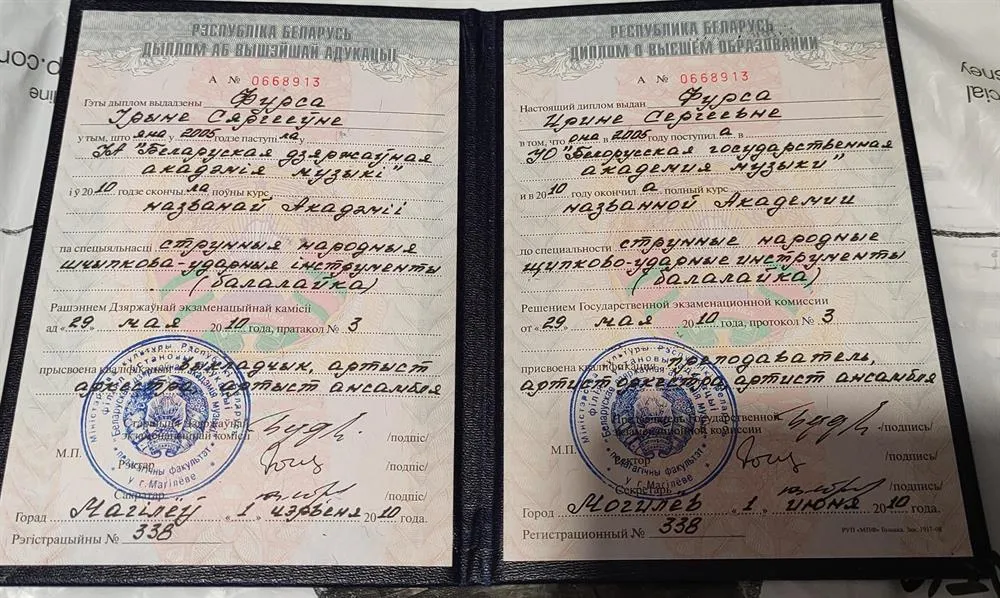 РЭСПУБЛІКА БЕЛАРУСЬ
ДЫПЛОМ АБ ВЫШЭЙШАЙ АДУКАЦЫІ
А № 0668913
Гэты дыплом выдадзены Фурса
Ірыне Сяргееўне
у тым, што яна у 2005 годзе паступіла у
УА "Беларуская дзяржаўная
акадэмія музыкі"
і ў 2010 годзе скончыла поўны курс
названай Акадэміі
па спецыяльнасці струнныя народныя
шчыпкова-ударныя інструменты
(балалайка)
Рашэннем Дзяржаўнай экзаменацыйнай камісіі
ад «29» мая 2010 года, пратакол № 3
прысвоена кваліфікацыя выкладчык, артыст
аркестра, артыст ансамбля
Старшыня Дзяржаўнай
экзаменацыйнай камісіі /подпіс/
М.П.
Рэктар /подпіс/
Сакратар /подпіс/
Горад Магілёў «1» чэрвеня 2010 года.
Рэгістрацыйны № 338
РЕСПУБЛИКА БЕЛАРУСЬ
ДИПЛОМ О ВЫСШЕМ ОБРАЗОВАНИИ
А № 0668913
Настоящий диплом выдан Фурса
Ирине Сергеевне
в том, что она в 2005 году поступила в
УО "Белорусская государственная
академия музыки"
и в 2010 году окончила полный курс
названной Академии
по специальности струнные народные
щипково-ударные инструменты
(балалайка)
Решением Государственной экзаменационной комиссии
от «29» мая 2010 года, протокол № 3
присвоена квалификация преподаватель,
артист оркестра, артист ансамбля
Председатель Государственной
экзаменационной комиссии /подпись/
М.П.
Ректор /подпись/
Секретарь /подпись/
Город Могилёв «1» июня 2010 года.
Регистрационный № 338
педагагічны факультэт
у г.Магілёве